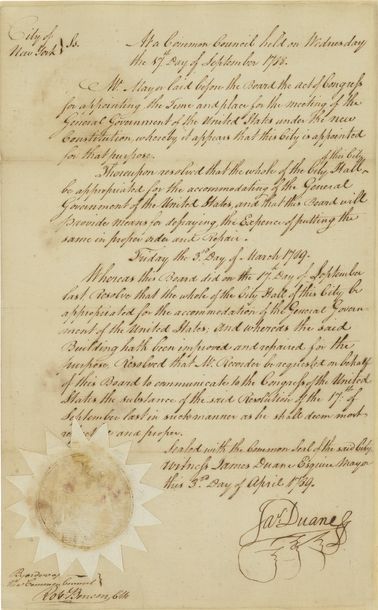 City of
New York } Ss.
At a Common Council held on Wednesday
the 17th Day of September 1788.
Mr Mayor laid before the Board the act of Congress
for appointing the Time and place for the meeting of the
General Government of the United States under the new
Constitution, whereby it appears that this City is appointed
for that purpose.
Thereupon resolved that the whole of the City Hall of this City
be appropriated for the accommodating of the General
Government of the United States, and that this Board will
Provide means for defraying the Expence of putting the
same in proper order and Repair.
Friday the 3d Day of March 1789.
Whereas this Board did on the 17th Day of September
last Resolve that the whole of the City Hall of this City be
appropriated for the accommodation of the General Govern-
ment of the United States, and whereas the said
Building hath been improved and repaired for the
purpose, Resolved that Mr Recorder be requested on behalf
of this Board to communicate to the Congress of the United
States the substance of the said Resolution of the 17th of
September last in such manner as he shall deem most
and proper.
Sealed with the Common Seal of the said City
Witness James Duane Esquire Mayor
this 3rd Day of April 1789.
Jas Duane
By order of
the Common Council
Robt Benson Clk